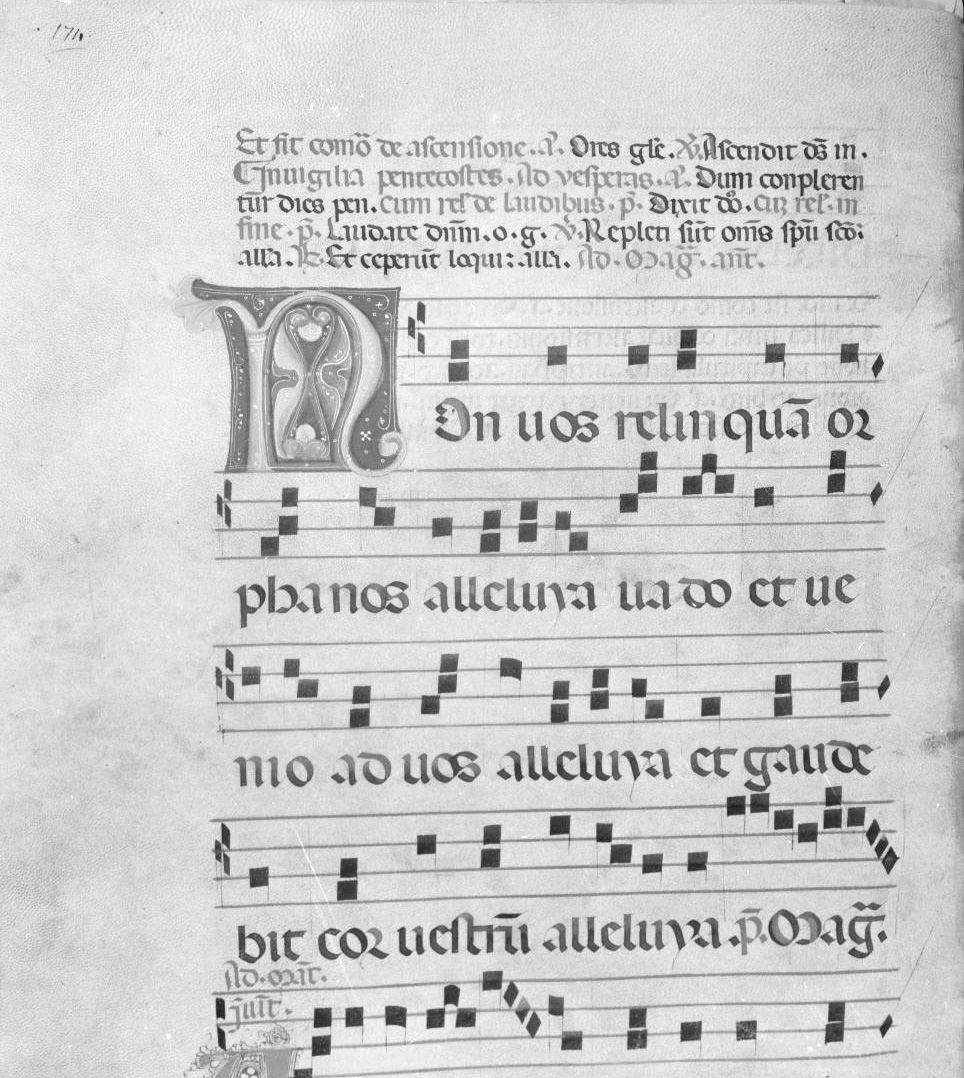 174.
Et fit com̄o de ascensione. a͛. Om̄s gl̄e. V̄. Ascendit d̄s in.
CInuigilia pentecostes. Ad vesperas. a͛. Dum conpleren
tur dies pen. Cum rel̄ de laudibus. p̄. Dixit dō. Cū rel̄. in
fine. p̄. Laudate dn̄m. o. g. V̄. Repleti sūt om̄s sp̄u sc̄o:
alła. R̄. Et ceperūt loqui: alła. Ad. Maḡ. ant̄.
NOn uos relinquā or
phanos alleluya uado et ue
nio ad uos alleluya et gaude
bit cor uestrū alleluya. p̄. Maḡ.
Ad. mat̄.
Juit̄.